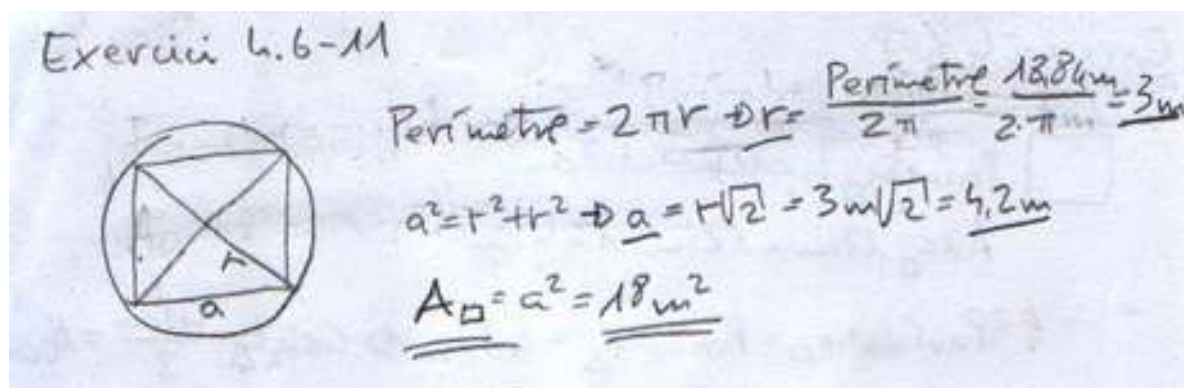 Exercici 4.6-11
Perímetre = 2πr ⇒ r = Perímetre / 2π = 18,84m / 2·π = 3m
a² = r² + r² ⇒ a = r√2 = 3m√2 = 4,2m
A□ = a² = 18m²
r
a